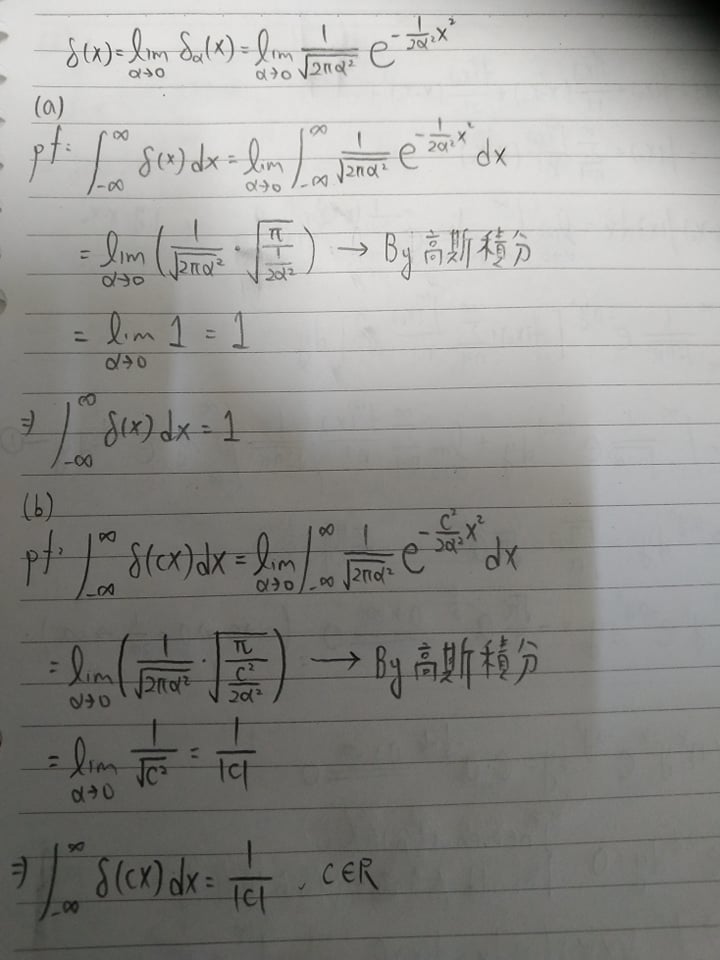 δ(x)=lim_{α→0} δ_α(x)=lim_{α→0} \frac{1}{\sqrt{2πα²}} e^{-\frac{1}{2α²}x²}
(a)
pf: ∫_{-∞}^{∞} δ(x)dx=lim_{α→0} ∫_{-∞}^{∞} \frac{1}{\sqrt{2πα²}} e^{-\frac{1}{2α²}x²} dx
=lim_{α→0} (\frac{1}{\sqrt{2πα²}} · \sqrt{\frac{π}{\frac{1}{2α²}}}) → By 高斯積分
= lim_{α→0} 1 = 1
⇒ ∫_{-∞}^{∞} δ(x)dx = 1
(b)
pf: ∫_{-∞}^{∞} δ(cx)dx=lim_{α→0} ∫_{-∞}^{∞} \frac{1}{\sqrt{2πα²}} e^{-\frac{c²}{2α²}x²} dx
=lim_{α→0} (\frac{1}{\sqrt{2πα²}} · \sqrt{\frac{π}{\frac{c²}{2α²}}}) → By 高斯積分
=lim_{α→0} \frac{1}{\sqrt{c²}} = \frac{1}{|c|}
⇒ ∫_{-∞}^{∞} δ(cx)dx= \frac{1}{|c|} , c∈R